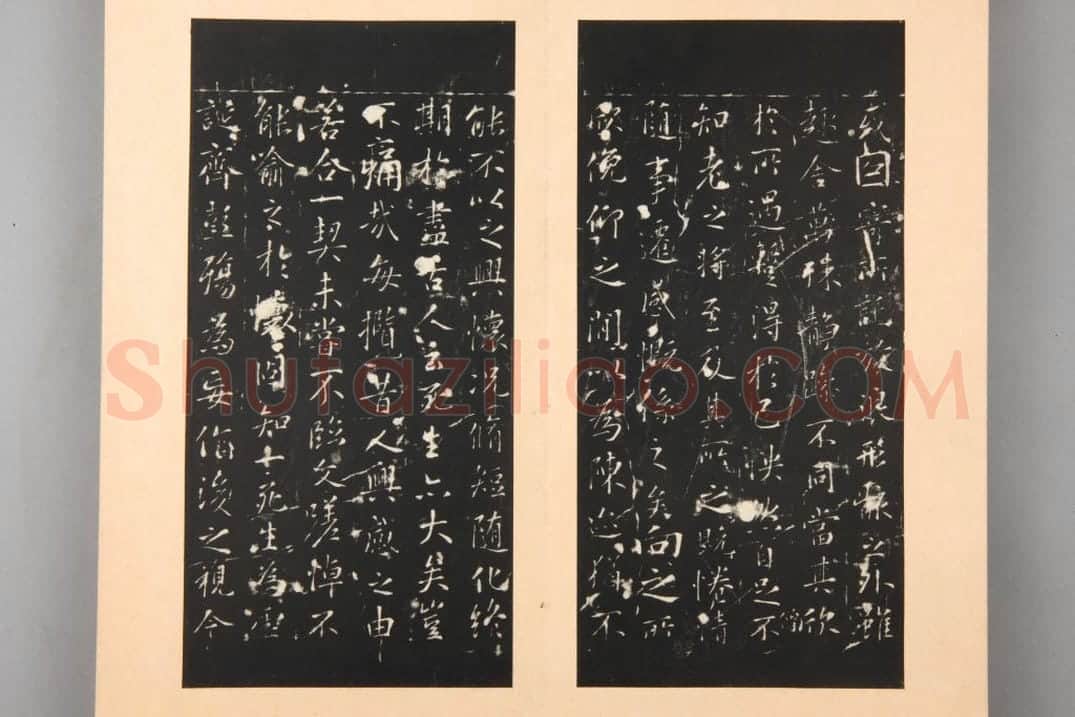 或因寄所託放浪形骸之外雖
趣舍萬殊靜躁不同當其欣
於所遇蹔得於己怏然自足不
知老之將至及其所之既惓情
隨事遷感慨係之矣向之所
欣俛仰之閒以為陳迹猶不
能不以之興懷況脩短隨化終
期於盡古人云死生亦大矣豈
不痛哉每攬昔人興感之由
若合一契未嘗不臨文嗟悼不
能喻之於懷固知一死生為虛
誕齊彭殤為妄作後之視今
Shufaziliao.COM